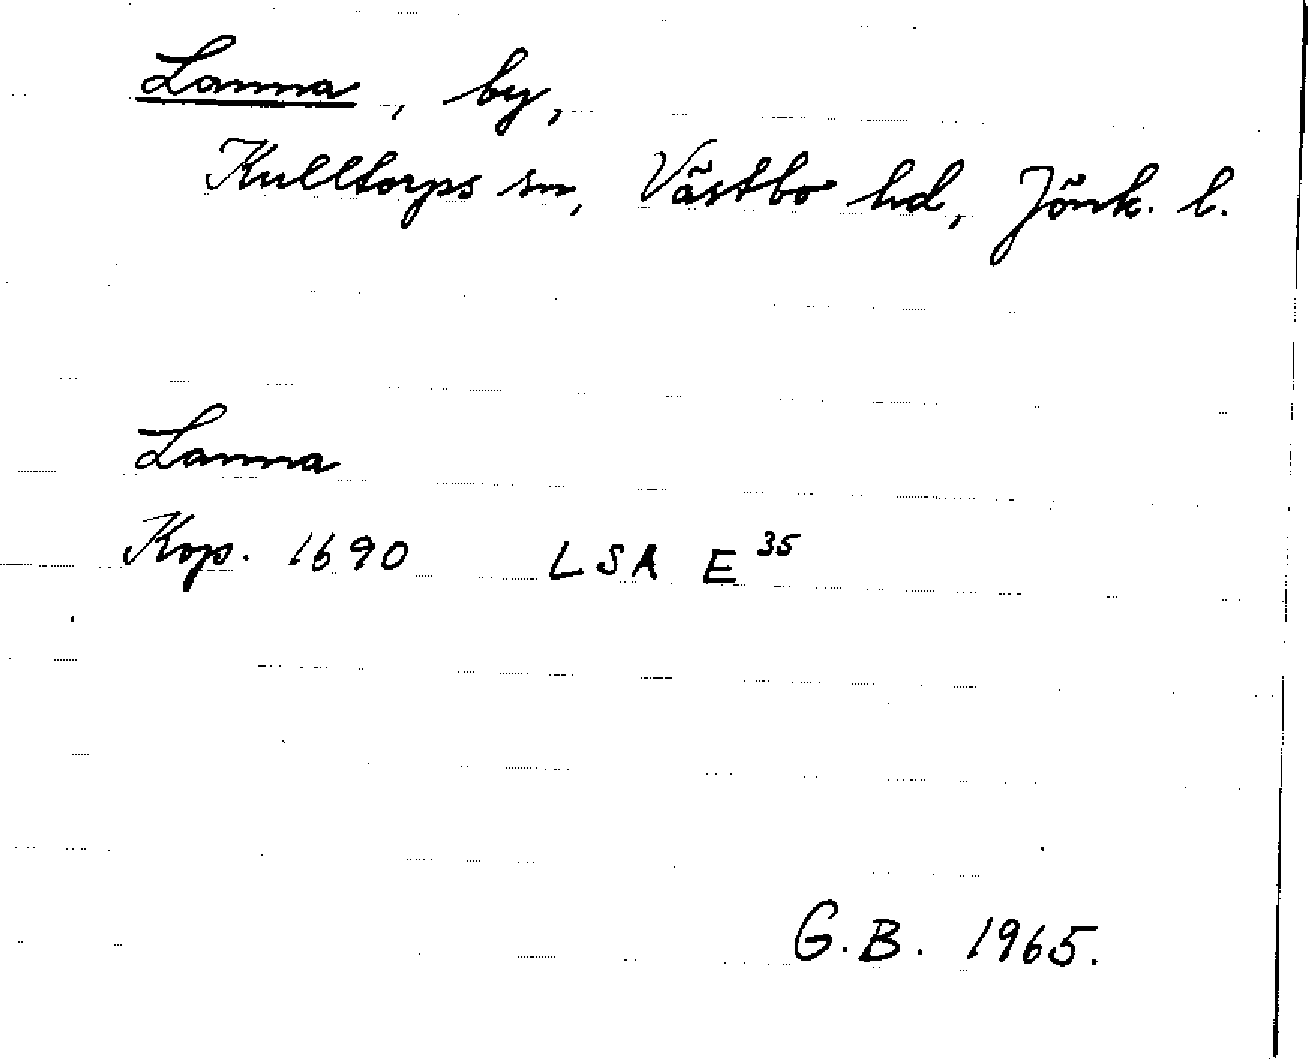 Lanna, by,
Kulltorps sn, Västbo hd, Jönk. l.
Lanna
Kop. 1690 LSA E 35
G.B. 1965.